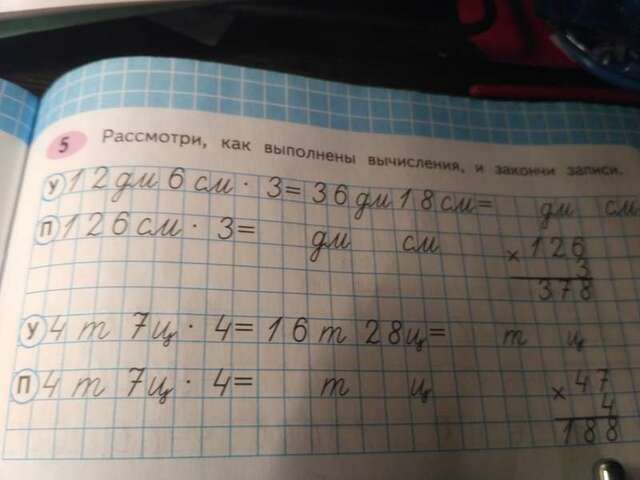 5 Рассмотри, как выполнены вычисления, и закончи записи.
У 12 дм 6 см · 3 = 36 дм 18 см = дм см
П 126 см · 3 = дм см
× 126
3
378
У 4 т 7 ц · 4 = 16 т 28 ц = т ц
П 4 т 7 ц · 4 = т ц
× 47
4
188